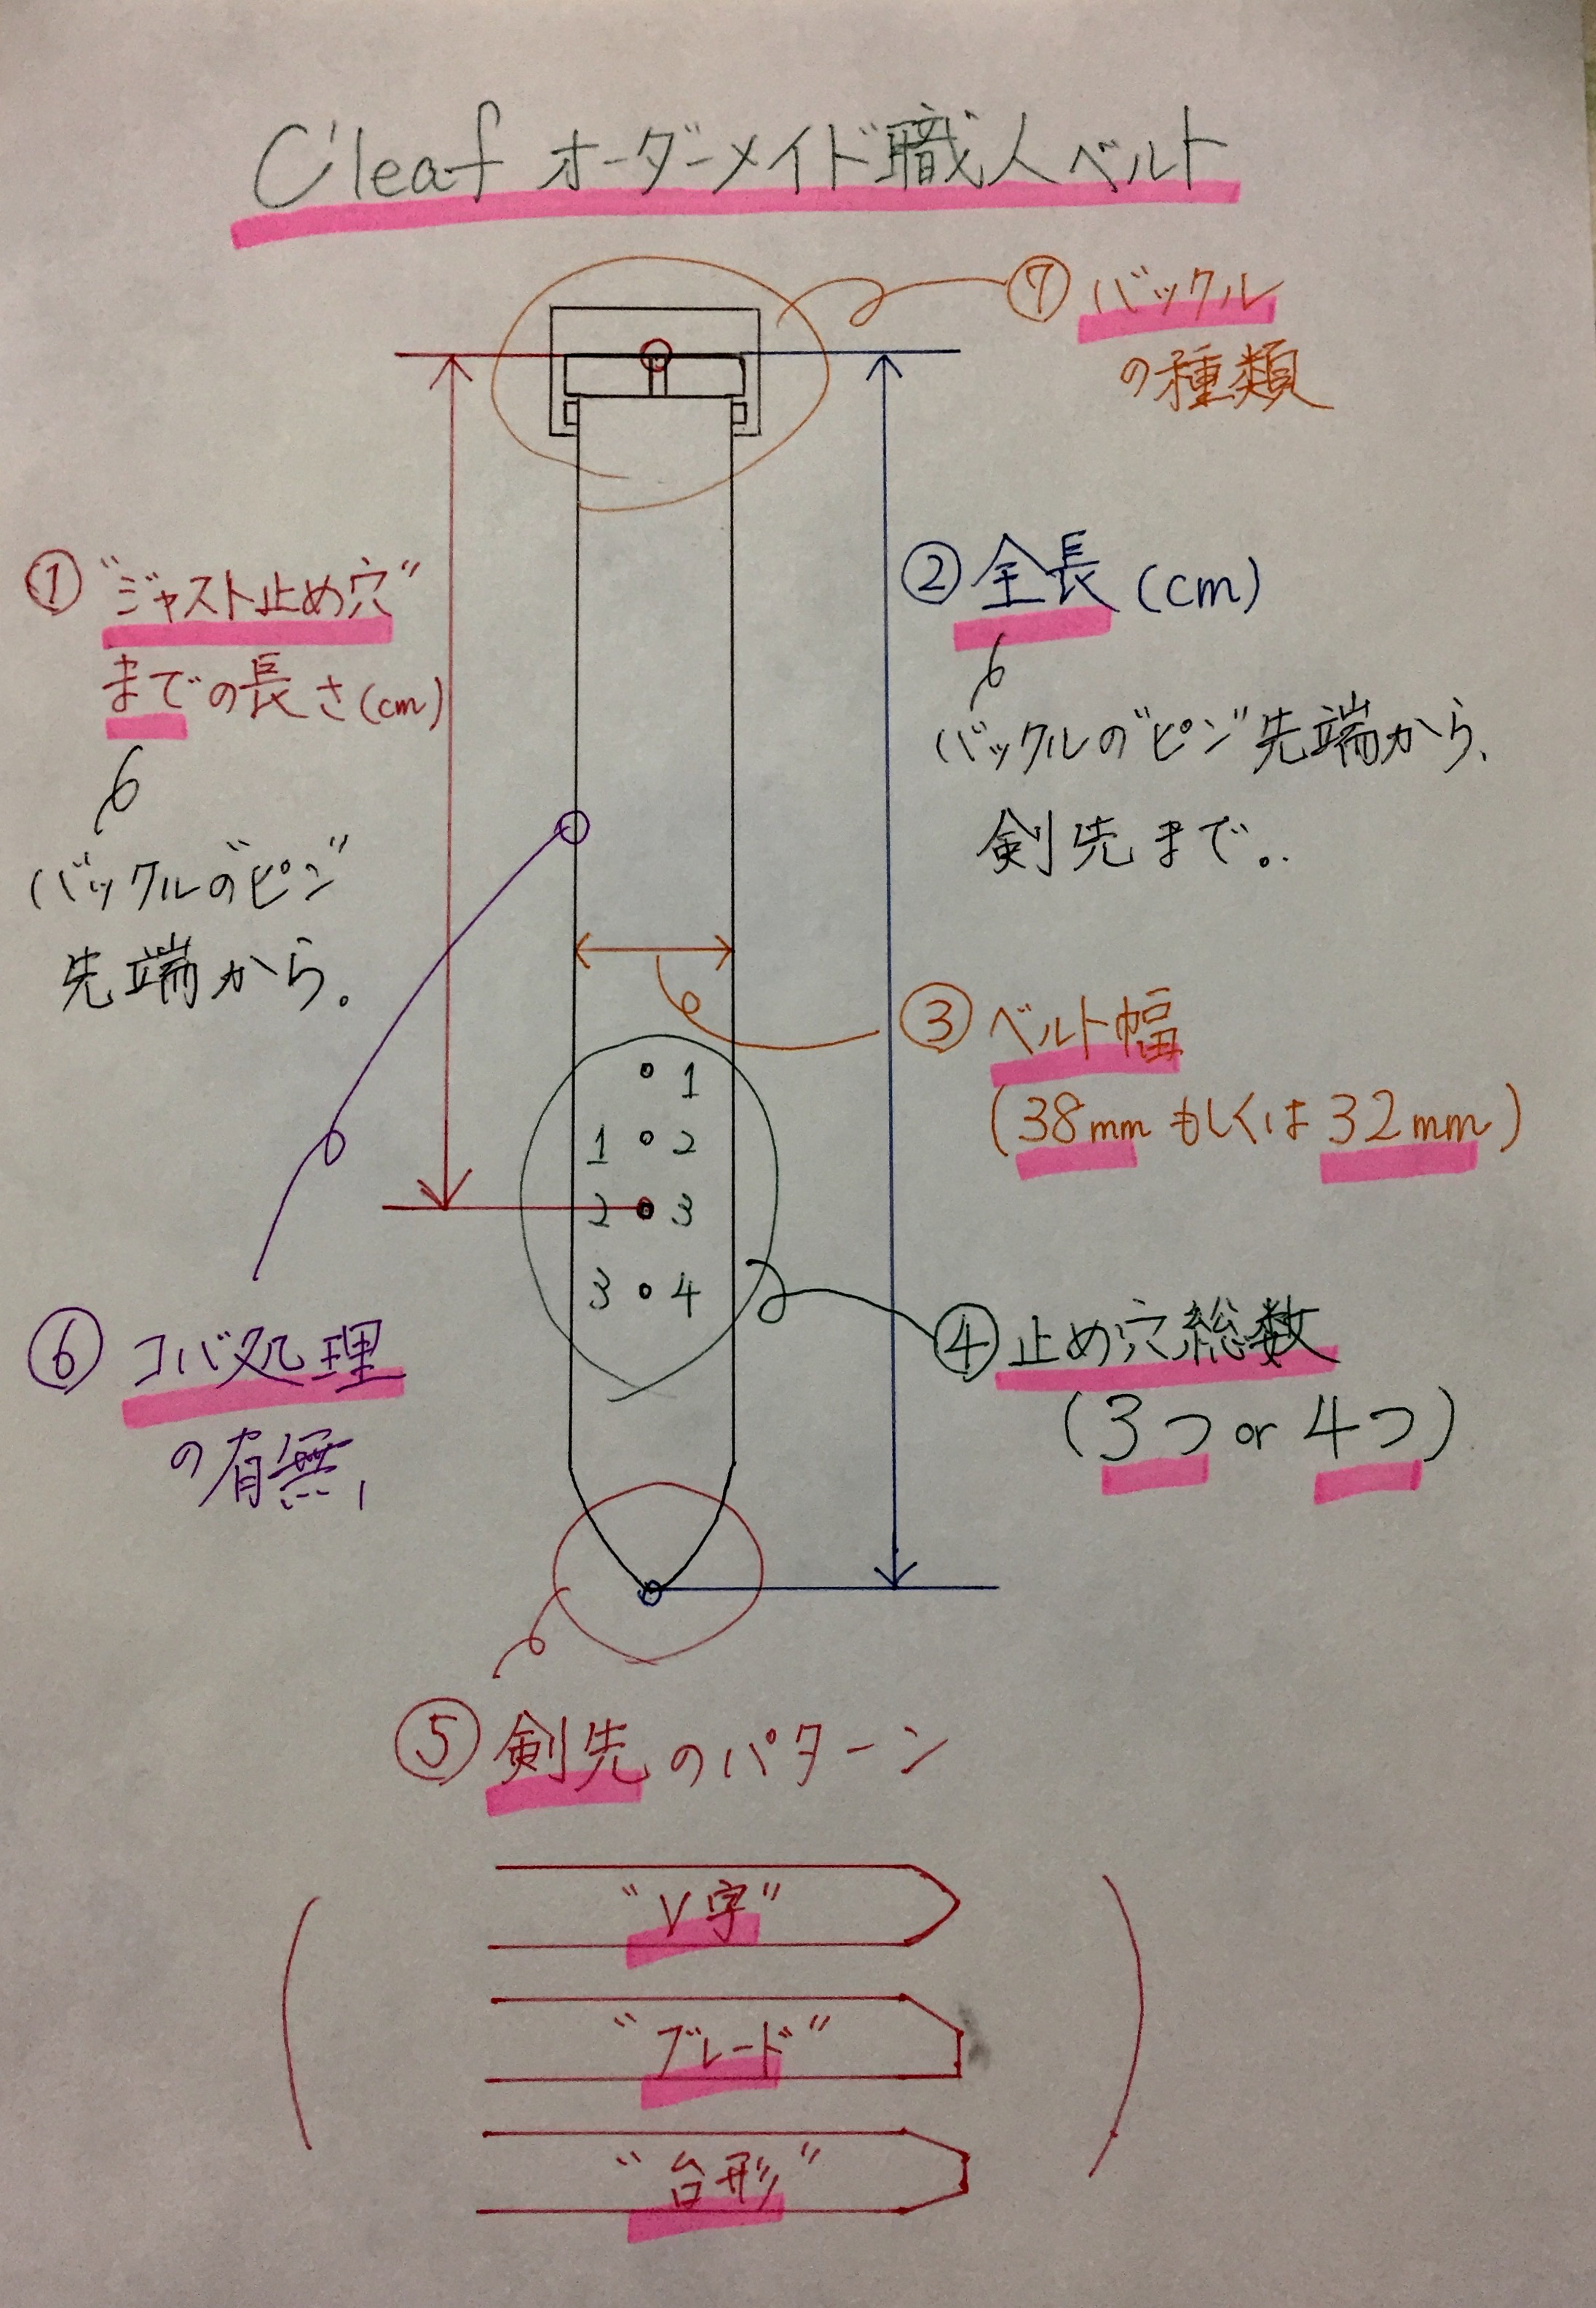 C'leaf オーダーメイド職人ベルト
⑦ バックル
の種類
① "ジャスト止め穴"
までの長さ(cm)
バックルの"ピン"
先端から。
② 全長 (cm)
バックルの"ピン"先端から、
剣先まで。
③ ベルト幅
(38mm もしくは 32mm)
1
1 2
2 3
3 4
④ 止め穴総数
(3つ or 4つ)
⑥ コバ処理
の有無
⑤ 剣先のパターン
"V字"
"ブレード"
"台形"